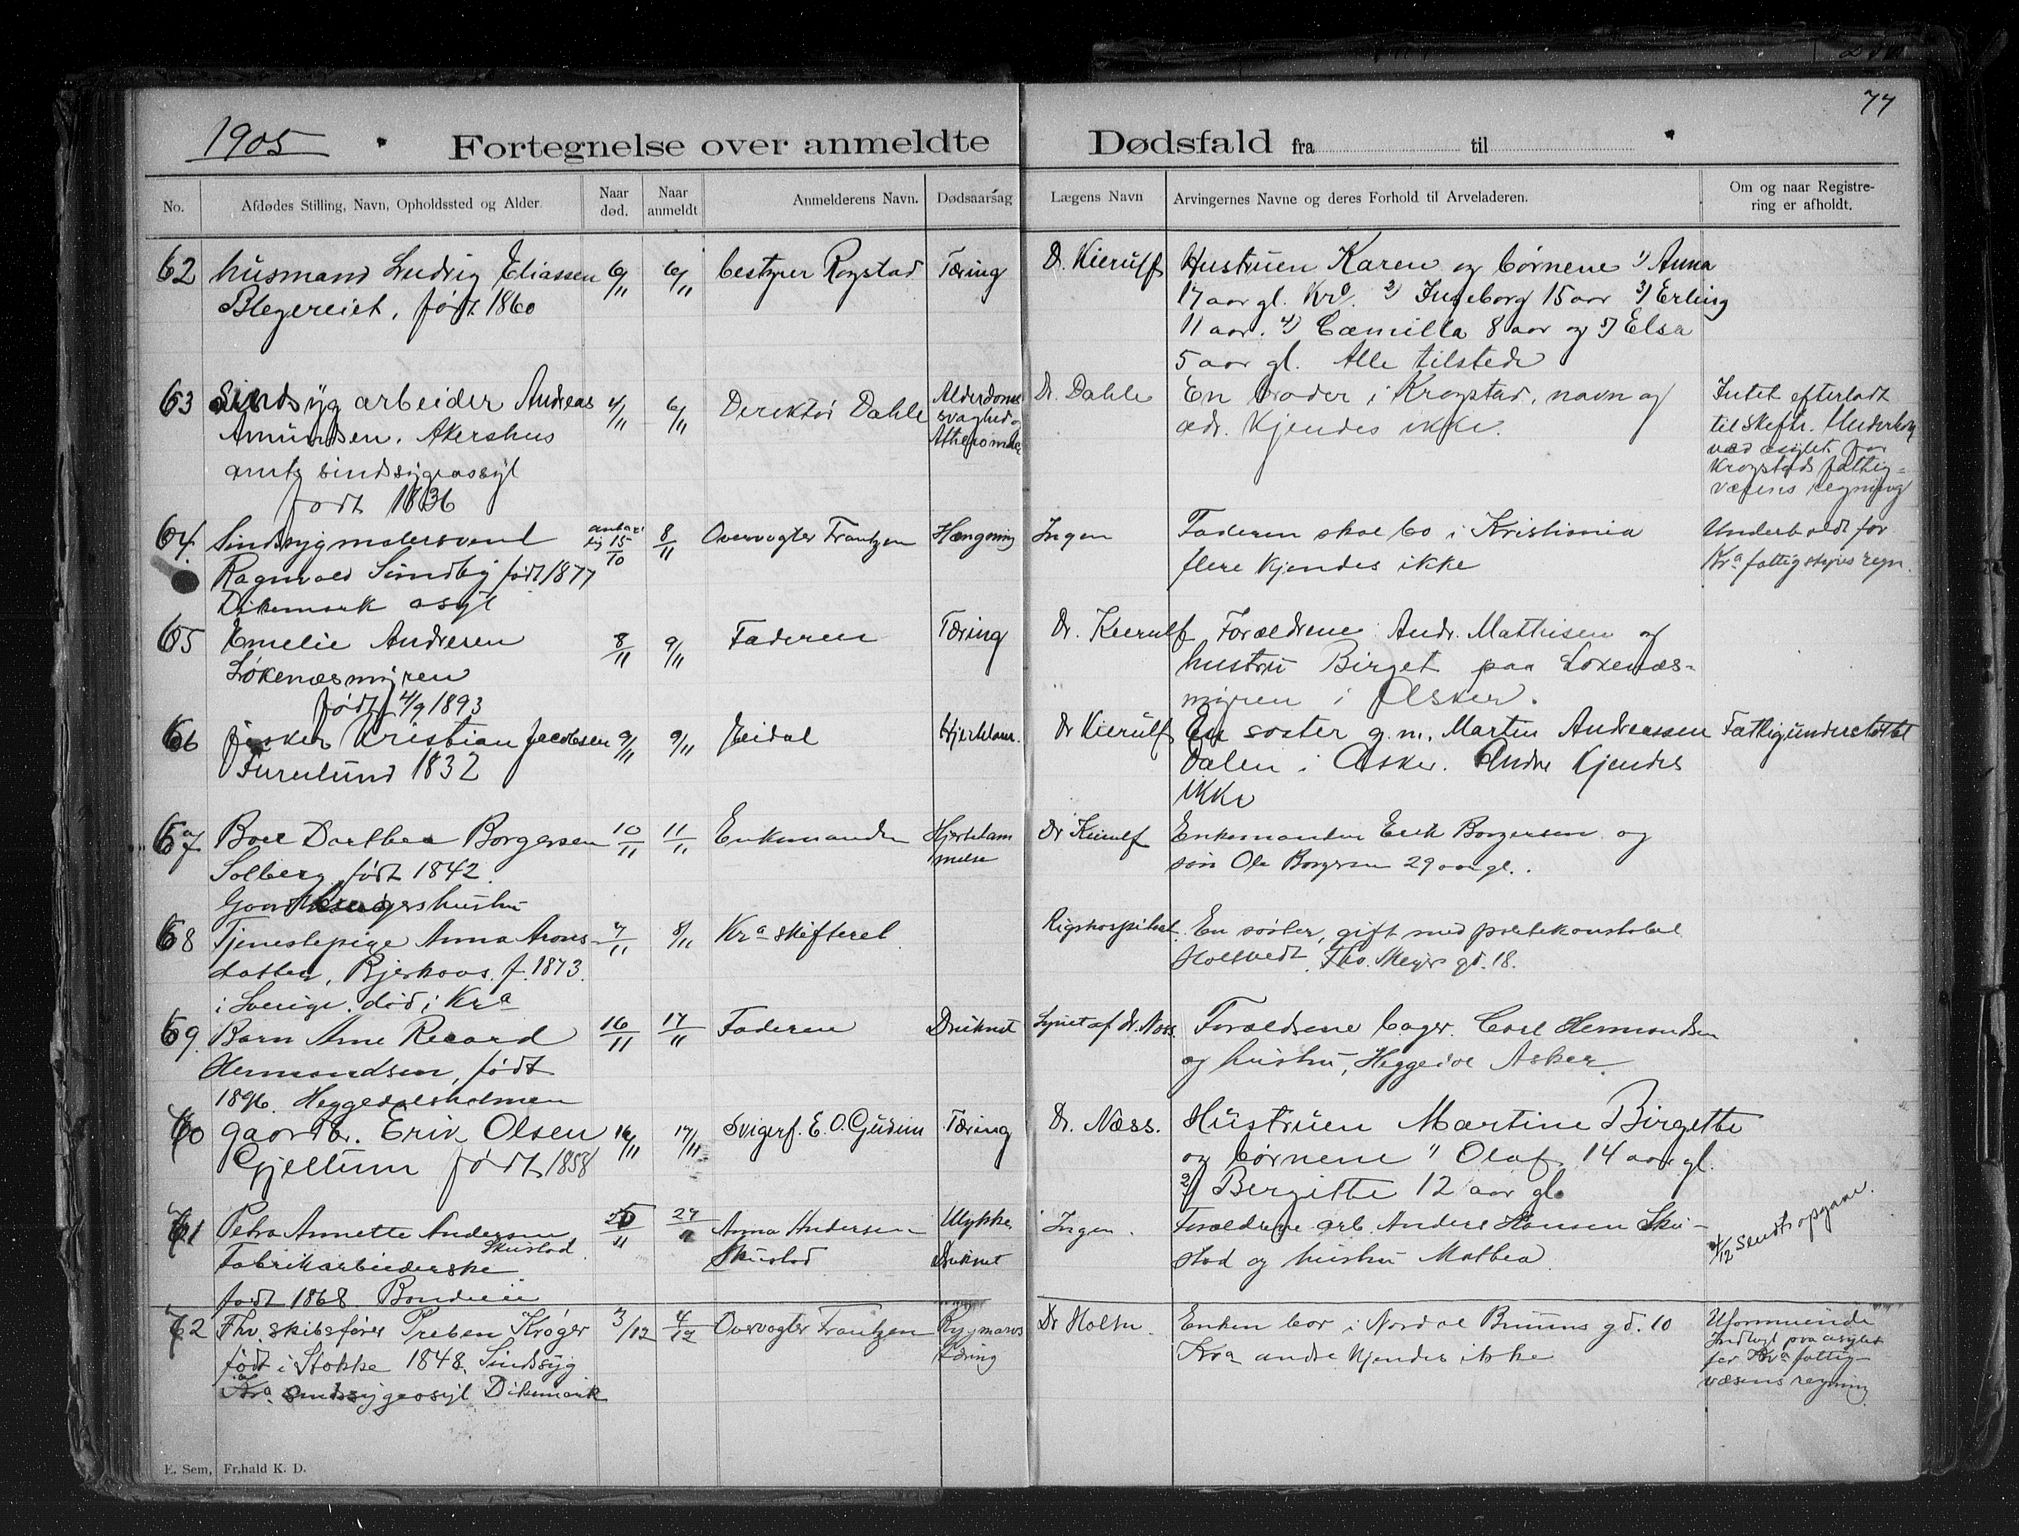 77
1905
Fortegnelse over anmeldte Dødsfald fra til
No. Afdødes Stilling, Navn, Opholdssted og Alder. Naar død. Naar anmeldt Anmelderens Navn. Dødsaarsag Lægens Navn Arvingernes Navne og deres Forhold til Arveladeren. Om og naar Registrering er afholdt.
62 husmand Ludvig Eliassen 6/11 6/11 bestyrer Rogstad Tæring Dr. Kierulf Hustruen Karen og børnene 1) Anna
Blegereiet, født 1860 17 aar gl. 2) Ingeborg 15 aar 3) Erling
11 aar. 4) Camilla 8 aar og 5) Elsa
5 aar gl. Alle tilstede
63 Sindsyg arbeider Andreas 4/11 6/11 Derektør Dahle Alderdoms Dr. Dahle En broder i Krogstad, navn og Intet efterladt
Amundsen. Akershus svaghed adr. kjendes ikke. til skifte.
amts sindsygeasyl ved asylet for
født 1836 Krogstads fattig-
væsens regning
64. Sindssyg malersvend 15/10 8/11 Overvogter Frantzen Hængning Ingen Faderen skal bo i Kristiania Underholdt for
Ragnvald Sundby født 1877 flere kjendes ikke Kra fattigstyres regn.
Dikemark asyl
65 Emelie Andresen 8/11 9/11 Faderen Tæring Dr. Kierulf Forældrene Andr. Mathisen og
Løkenæsmyren hustru Birget paa Løkenæs-
født 4/9 1893 myren i Asker.
66 fisker Kristian Jacobsen 9/11 9/11 Heidal Hjertelam. Dr Kierulf En søster g.m. Martin Andreassen Fattigunderstøttet
Furulund 1832 Dalen i Asker. Andre kjendes
ikke
67 Boel Dorthea Borgersen 10/11 11/11 Enkemanden Hjertelam Dr Kierulf Enkemanden Erik Borgersen og
Solberg, født 1842. melse søn Ole Borgersen 29 aar gl.
68 Tjenestepige Anna Arons- 7/11 8/11 Kra skifteret Rigshospitalet. En søster, gift med politikonstabel
datter, Bjerkaas. f. 1873. Holtvedt. Ths. Meyers gd. 18.
i Sverige. død i Kra
69. Barn Arne Recard 16/11 17/11 Faderen Druknet Synet af Dr. Næss. Forældrene bager Carl Hermandsen
Hermandsen, født og hustru, Heggedal Asker.
1896. Heggedalsholmen
70 gaardbr. Erik Olsen 16/11 17/11 Svigerf. E. O. Gudim Tæring Dr. Næss. Hustruen Martine Birgette
Gjellum født 1858 og børnene 1) Olaf 14 aar gl.
2) Bergitte 12 aar gl.
71 Petra Annette Andersen Anna Andersen Ulykke Ingen. Forældrene arb. Anders Hansen Sku-
Skustad
Fabrikarbeiderske Skustad Druknet stad og hustru Mathea 4/12 Sendt opgave.
født 1868. Bondivei
72 Fhv. skibsfører Preben Krøger 3/12 4/12 Overvogter Frantzen Rygmarvs Dr Holm. Enken bor i Nordal Bruuns gd. 10 Uformuende
født i Stokke 1848. Sindsyg tæring Kra andre kjendes ikke Indlagt paa asylet
Kra sindssygeasyl Dikemark for Kra fattig-
væsens regning
E. Sem, Fr.hald K. D.